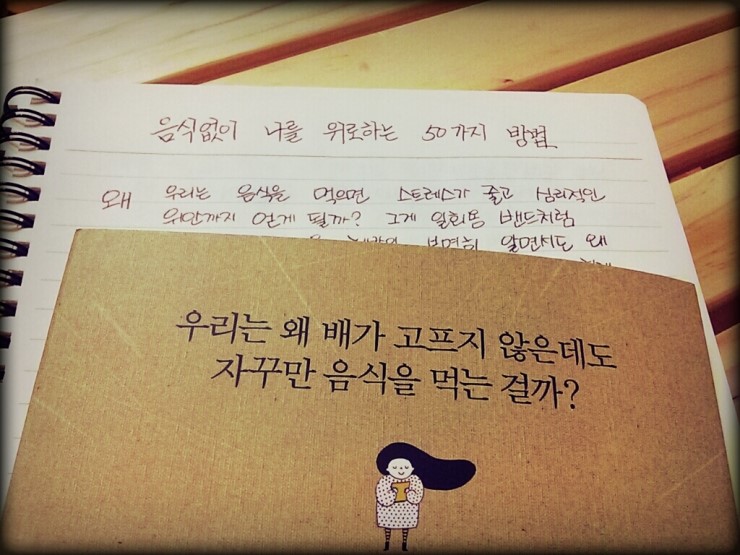 음식없이 나를 위로하는 50가지 방법
왜 우리는 음식을 먹으면 스트레스가 줄고 심리적인
위안까지 얻게 될까? 그게 일회용 밴드처럼
뻔히 알면서도 왜
우리는 왜 배가 고프지 않은데도
자꾸만 음식을 먹는 걸까?